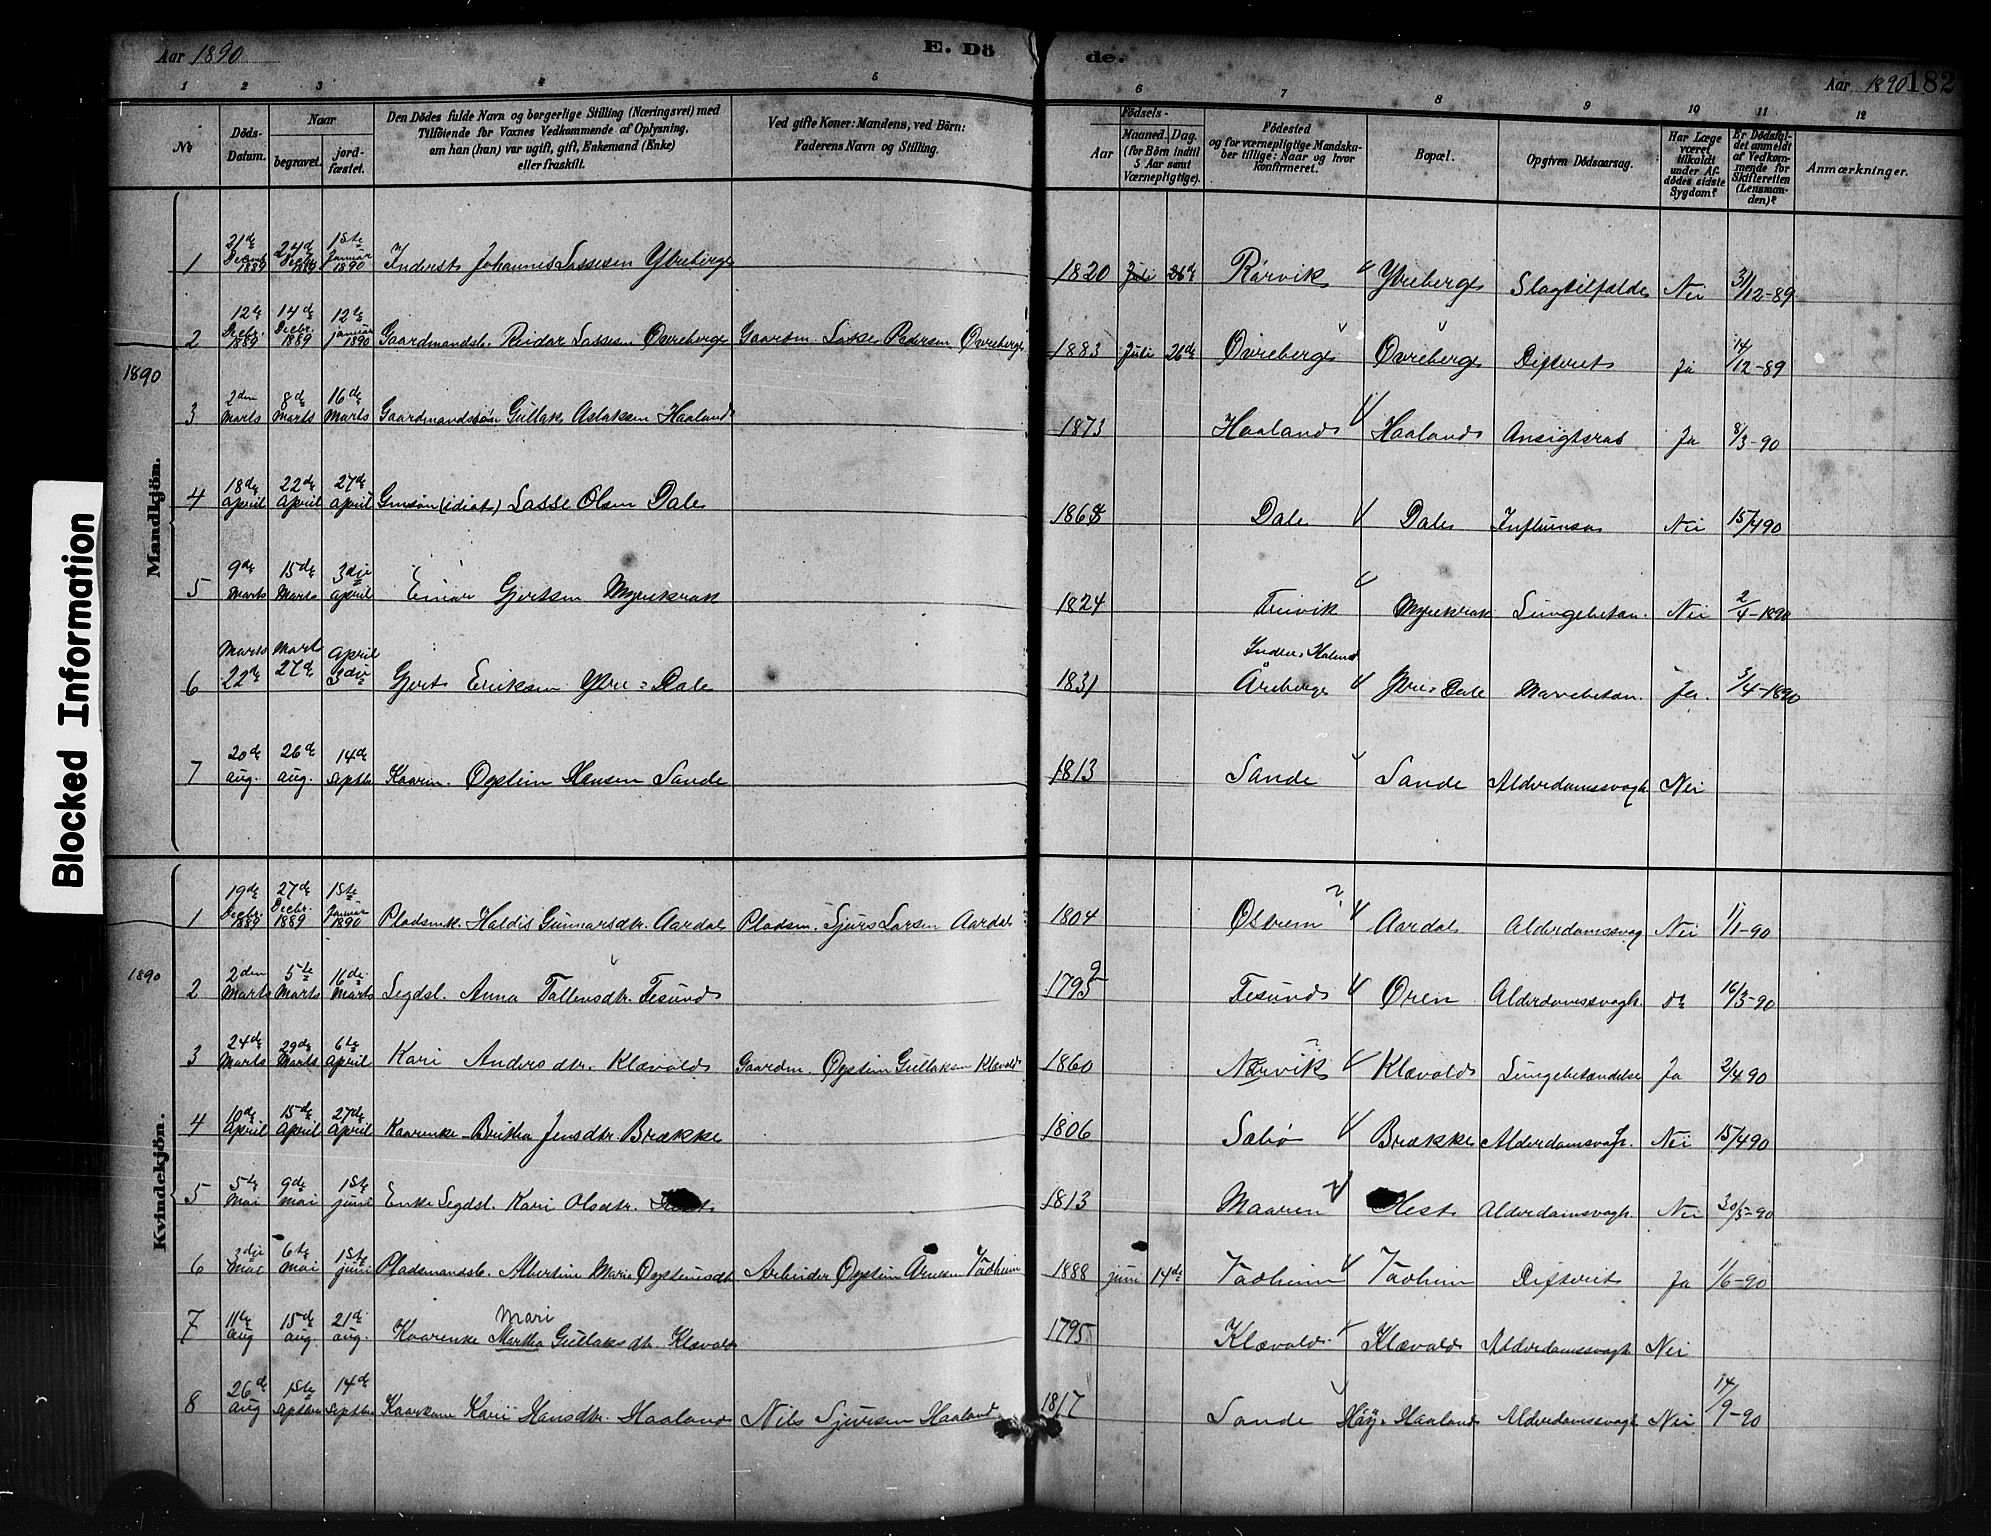 Aar 1890
E. Dö
de.
Aar 1890 182
1 2 3 4 5
6 7 8 9 10 11 12
No
Döds-Datum.
Naar
begravet.
jord-fæstet.
Den Dödes fulde Navn og borgerlige Stilling (Næringsvei) med
Tilföiende for Voxnes Vedkommende af Oplysning,
om han (hun) var ugift, gift, Enkemand (Enke)
eller fraskilt.
Ved gifte Koner: Mandens, ved Börn:
Faderens Navn og Stilling.
Födsels-
Aar
Maaned. Dag.
(for Börn indtil
5 Aar samt
Værnepligtige).
Födested
og for værnepligtige Mandska-
ber tillige: Naar og hvor
konfirmeret.
Bopæl.
Opgiven Dödsaarsag.
Har Læge
været
tilkaldt
under Af-
dödes sidste
Sygdom?
Er Dödsfal-
det anmeldt
af Vedkom-
mende for
Skifteretten
(Lensman-
den)?
Anmærkninger.
Mandkjön.
1 21de Decemb 1889 24de Decbr 1889 1ste Januar 1890 Inderst Johannes Lassesen Ytreberge 1820 Juli 26de Rørvik Ytreberge Slagtilfælde Nei 31/12-89
2 12te Decbr. 1889 14de Decbr. 1889 12te januar 1890 Gaardmandsb. Reidar Lassesen Øvreberge Gaardm. Lasse Pedersen Øvreberge 1883 Juli 26de Øvreberge Øvreberge Difterit Ja 14/12-89
1890
3 2den Marts 8de Marts 16de Marts Gaardmandssøn Gullak Aslaksen Haaland 1873 Haaland Haaland Ansigtsros Ja 8/3-90
4 18de April 22de April 27de April Gmsøn (idiot) Lasse Olsen Dale 1868 Dale Dale Influensa Nei 15/4 90
5 9de Marts 15de Marts 3die April Einar Gjertsen Myrekrok 1824 Myrekrok Lungebetæn. Nei 2/4-1890
6 Marts 22de Marts 27de April 3die Gjert Eriksen Ytre-Dale 1831 Åreberge Ytre Dale Mavebetæn. Ja. 3/4-1890
7 20de Aug. 26de Aug. 14de Septbr Kaarm. Øystein Hansen Sande 1813 Sande Sande Alderdomssvagh Nei
Kvindekjön.
1 19de Decbr. 1889 27de Decbr. 1889 1ste Januar 1890 Pladsmk. Haldis Gunnarsdtr. Aardal Pladsm. Sjurs Larsen Aardal 1804 Østrem ? Aardal Alderdomssvag Nei 1/1-90
1890
2 2den Marts 5te Marts 16de Marts Legdsl. Anna Tollevsdtr. Tesund 1795 9 Tesund Øren Alderdomssvagh. do 16/3-90
3 24de Marts 29de Marts 6te April Kari Andersdtr. Klævold Gaardm. Øystein Gullaksen Klævold 1860 Nørvik Klævold Lungebetændelse Ja 2/4 90
4 10de April 15de April 27de April Kaarenke Britha Jensdtr. Brække 1806 Sabø Brække Alderdomsvagh. Nei 15/4 90
5 5te Mai 9de Mai 1ste juni Enke Legdsl. Kari Olsdtr. 1813 Maaren Hest Alderdomsvagh. Nei 30/5-90
6 3die Mai 6te Mai 1ste juni Pladsmandsb. Albertine Marie Øysteinsdtr Arbeider Øystein Arnesen Vadheim 1888 juni 14de Vadheim Vadheim Difterit Ja 1/6-90
7 11te Aug 15de Aug. 21de Aug. Kaarenke Mari Martha Gullaksdtr. Klævold 1795 Klævold Klævold Alderdomssvagh Nei
8 26de Aug 1ste Septbr 14de Septbr Kaarkone Kari Hansdtr. Haaland Nils Sjursen Haaland 1817 Sande Høy-Haaland Alderdomssvagh Nei 14/9-90
Blocked Information